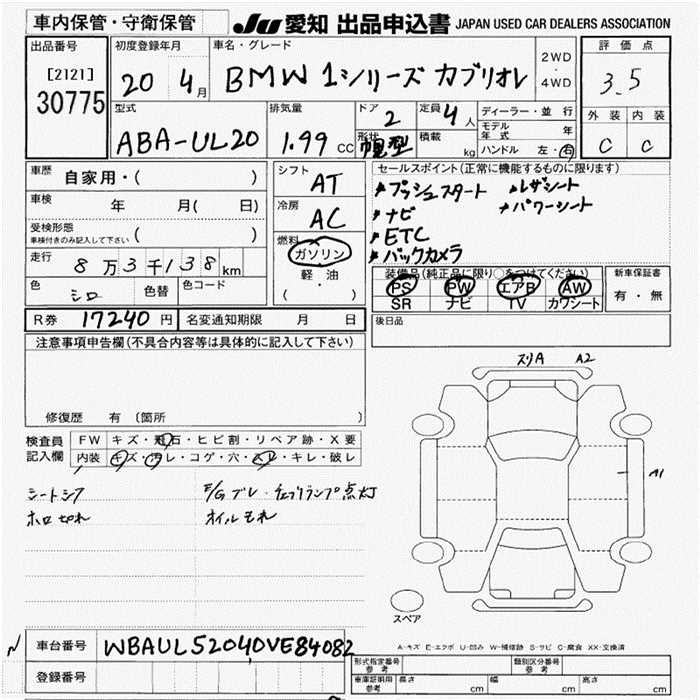 車内保管・守衛保管
JU 愛知 出品申込書 JAPAN USED CAR DEALERS ASSOCIATION
出品番号
[2121]
30775
初度登録年月
20 4月
車名・グレード
BMW 1シリーズ カブリオレ
2WD
4WD
評価点
3.5
型式
ABA-UL20
排気量
1.99 CC
ドア
2
形状
幌型
定員
4人
積載
kg
ディーラー・並行
モデル年式 年
ハンドル 左・右
外装 内装
C C
車歴
自家用・( )
車検
年 月( 日)
受検形態
車検付きのみ記入して下さい ( )
走行
8万3千138km
色
シロ
色替
色コード
シフト
AT
冷房
AC
燃料
ガソリン
軽・油
( )
セールスポイント(正常に機能するものに限ります)
プッシュスタート
レザシート
ナビ
パワーシート
ETC
バックカメラ
装備品(純正品に限り○をつけてください)
PS PW エアB AW
SR ナビ TV カワシート
新車保証書
有・無
R券 17240円
名変通知期限 月 日
後日品
注意事項申告欄(不具合内容等は具体的に記入して下さい)
修復歴 有 〔箇所 〕
検査員
記入欄
FW キズ・飛石・ヒビ割・リペア跡・X要
内装 キズ・汚レ・コゲ・穴・スレ・キレ・破レ
シートシワ
ホロ切れ
E/Gブレ・チェックランプ点灯
オイルモレ
スリA A2
A1
スペア
A-キズ E-エクボ U-凹み W-補修跡 S-サビ C-腐食 XX-交換済
車台番号
WBAUL52040VE84082
登録番号
形式指定番号
参考
類別区分番号
参考
車庫証明用
参考
長さ cm 幅 cm 高さ cm